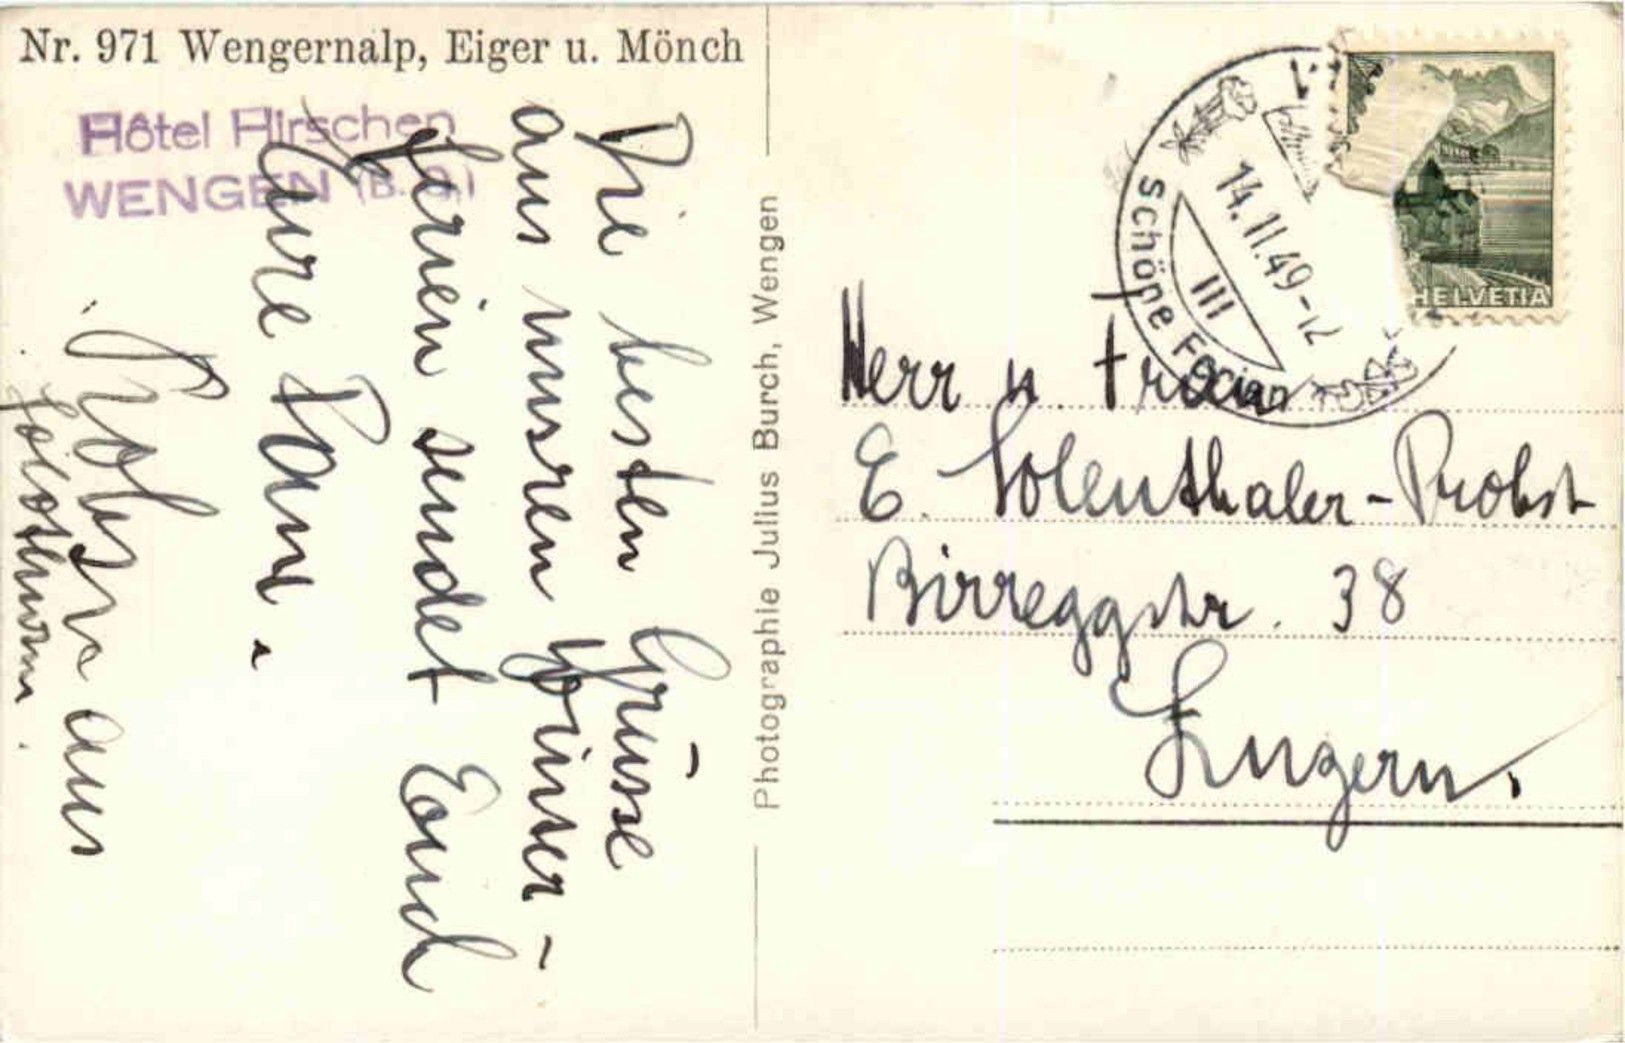 Nr. 971 Wengernalp, Eiger u. Mönch
Hôtel Hirschen
WENGEN (B. O.)
Die besten Grüsse
aus unsren Winter-
ferien sendet Euch
Eure
aus
Photographie Julius Burch, Wengen
Schöne Ferien
14.II.49-12
III
HELVETIA
Herr u. Frau
E. Solenthaler-Probst
Birreggstr. 38
Luzern.